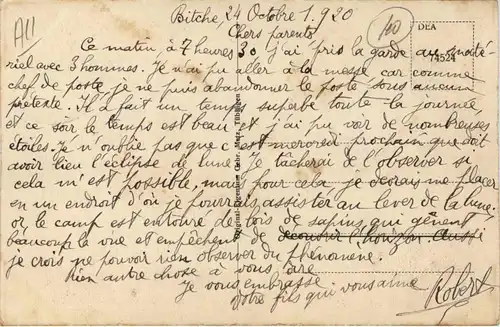 All
Bitche, 24 Octobre 1.920
100
DEA
74524
Chers parents
Ce matin, à 7 heures 30 j'ai pris la garde au maté-
riel avec 3 hommes. Je n'ai pu aller à la messe car comme
chef de poste je ne puis abandonner le poste sous aucun
prétexte. Il a fait un temps superbe toute la journée
et ce soir le temps est beau et j'ai pu voir de nombreuses
étoiles. Je n'oublie pas que c'est mercredi prochain que doit
avoir lieu l'éclipse de lune. Je tâcherai de l'observer si
cela m'est possible, mais pour cela je devrais me placer
en un endroit d'où je pourrais assister au lever de la lune.
or le camp est entouré de bois de sapins qui gênent
beaucoup la vue et empêchent de découvrir l'horizon. Aussi
je crois ne pouvoir rien observer du phénomène.
Rien autre chose à vous dire
Je vous embrasse
Votre fils qui vous aime
Robert